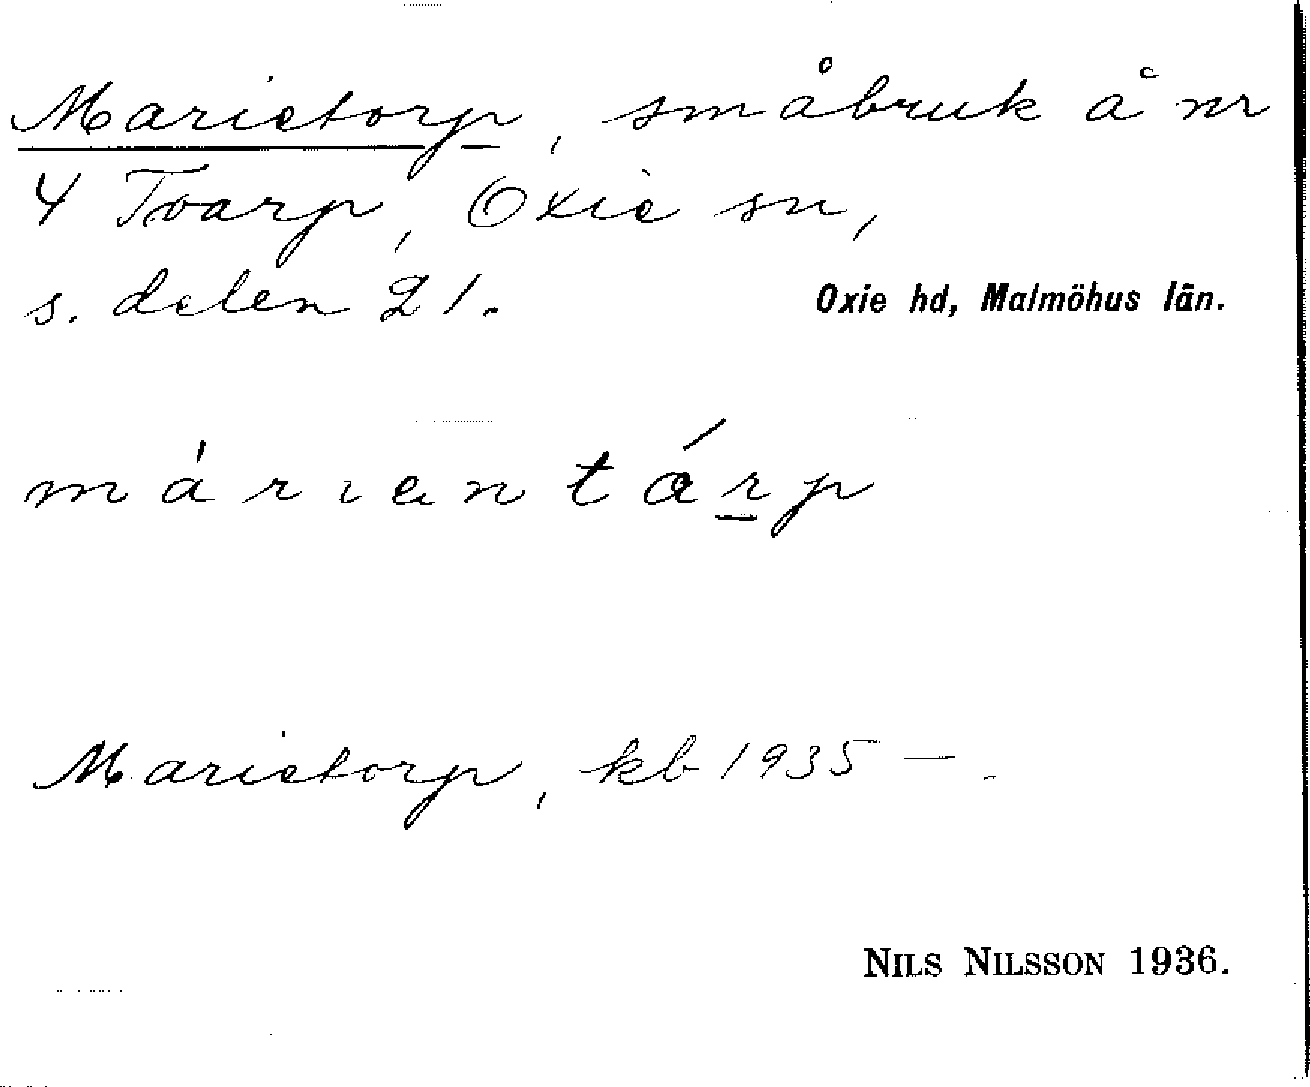 Marietorp, småbruk å nr
4 Toarp, Oxie sn,
s. delen 21.
Oxie hd, Malmöhus län.
márıantárp
Marietorp, kb 1935 —.
NILS NILSSON 1936.